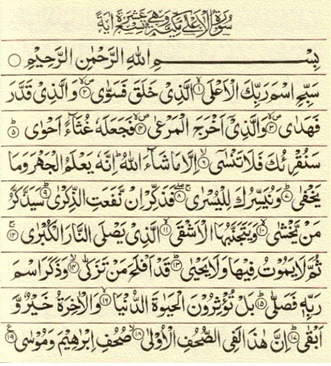 سُورَةُ الْاَعْلٰى مَكِّيَّةٌ وَّهِيَ تِسْعَ عَشَرَةَ اٰيَةً
بِسْمِ اللّٰهِ الرَّحْمٰنِ الرَّحِيْمِ ○
سَبِّحِ اسْمَ رَبِّكَ الْاَعْلَى ۙ۱ الَّذِيْ خَلَقَ فَسَوّٰى ۪ۙ۲ وَالَّذِيْ قَدَّرَ
فَهَدٰى ۪ۙ۳ وَالَّذِيْٓ اَخْرَجَ الْمَرْعٰى ۪ۙ۴ فَجَعَلَهٗ غُثَآءً اَحْوٰى ؕ۵
سَنُقْرِئُكَ فَلَا تَنْسٰٓى ۙ۶ اِلَّا مَا شَآءَ اللّٰهُ ؕ اِنَّهٗ يَعْلَمُ الْجَهْرَ وَمَا
يَخْفٰى ؕ۷ وَنُيَسِّرُكَ لِلْيُسْرٰى ۚۖ۸ فَذَكِّرْ اِنْ نَّفَعَتِ الذِّكْرٰى ؕ۹ سَيَذَّكَّرُ
مَنْ يَّخْشٰى ۙ۱۰ وَيَتَجَنَّبُهَا الْاَشْقَى ۙ۱۱ الَّذِيْ يَصْلَى النَّارَ الْكُبْرٰى ۚ۱۲
ثُمَّ لَا يَمُوْتُ فِيْهَا وَلَا يَحْيٰى ؕ۱۳ قَدْ اَفْلَحَ مَنْ تَزَكّٰى ۙ۱۴ وَذَكَرَ اسْمَ
رَبِّهٖ فَصَلّٰى ؕ۱۵ بَلْ تُؤْثِرُوْنَ الْحَيٰوةَ الدُّنْيَا ۖ۱۶ وَالْاٰخِرَةُ خَيْرٌ وَّ
اَبْقٰى ؕ۱۷ اِنَّ هٰذَا لَفِي الصُّحُفِ الْاُوْلٰى ۙ۱۸ صُحُفِ اِبْرٰهِيْمَ وَمُوْسٰى ۱۹